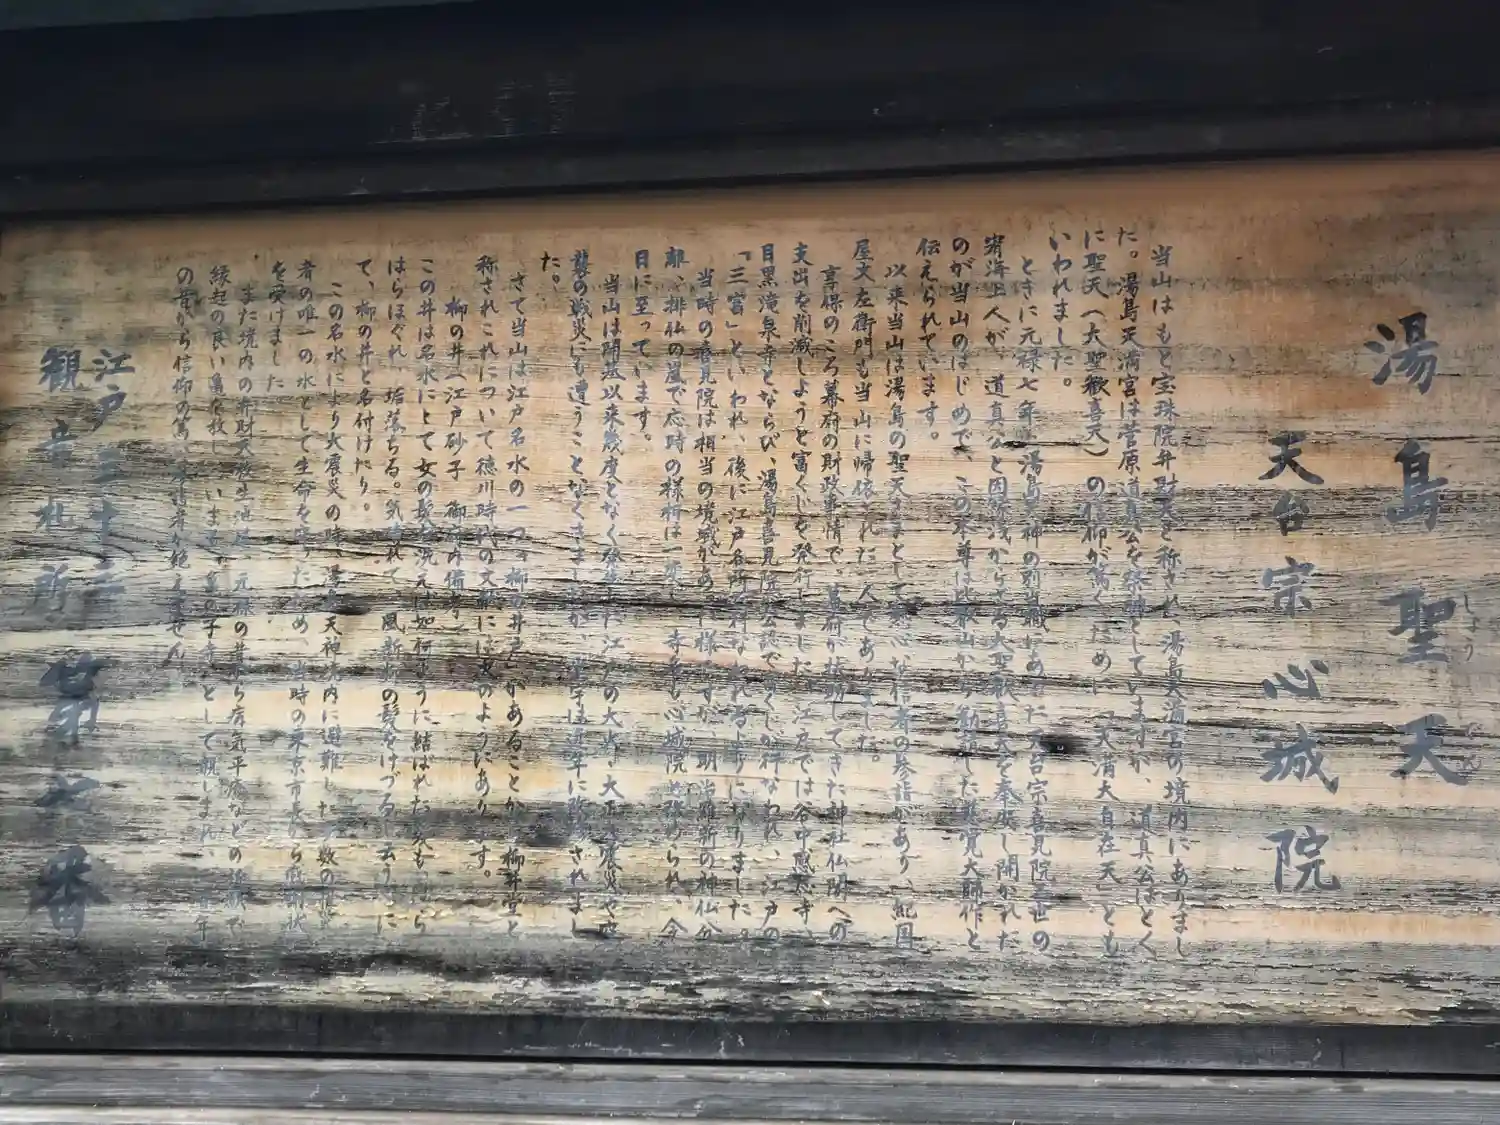 湯島聖天
しょう
でん
天台宗 心城院
当山はもと宝珠院弁財天と称され、湯島天満宮の境内にありまし
た。湯島天満宮は菅原道真公を祭神としていますが、道真公はとく
に聖天(大聖歓喜天)の信仰が篤くために「天満大自在天」とも
いわれました。
ときに元禄七年、湯島天神の別当職にあった天台宗喜見院三世の
宥海上人が、道真公と因縁浅からざる大聖歓喜天を奉安し開かれた
のが当山のはじめで、この本尊は比叡山から勧請した慈覚大師作と
伝えられています。
以来当山は湯島の聖天さまとして熱心な信者の参詣があり、紀国
屋文左衛門も当山に帰依された一人でありました。
享保のころ幕府の財政事情で、幕府が援助してきた神社仏閣への
支出を削減しようと富くじを発行しました。江戸では谷中感応寺、
目黒滝泉寺とならび、湯島喜見院公認で富くじが行なわれ、江戸の
「三富」といわれ、後に江戸名所
当時の喜見院は相当の境域があった様ですが、明治維新の神仏分
離、排仏の嵐で応時の様相は一変し、寺名も心城院と改められ、今
日に至っています。
当山は開基以来幾度となく発生した江戸の大火、大正大震災や空
襲の戦災にも遭うことなくきましたが、堂宇は近年に改築されまし
た。
さて当山は江戸名水の一つ「柳の井戸」があることから柳井堂と
称されこれについて徳川時代の文献には次のようにあります。
柳の井(江戸砂子 御府内備考)
この井は名水にとて女の髪を洗えば如何ように結ばれた髪もはら
はらほぐれ、垢落ちる。気晴れて、風新柳の髪をけづると云う心に
て、柳の井と名付けたり。
この名水により大震災の時、湯島天神境内に避難した多数の罹災
者の唯一の水として生命を守ったため、当時の東京市長から感謝状
を受けました
また境内の弁財天放生池は、元禄の昔から病気平癒などの祈願で
縁起の良い亀を放し、いまも「亀の子寺」として親しまれ、百年
の昔から信仰の篤い参詣者が絶えません。
江戸三十三
観音札所 第七番